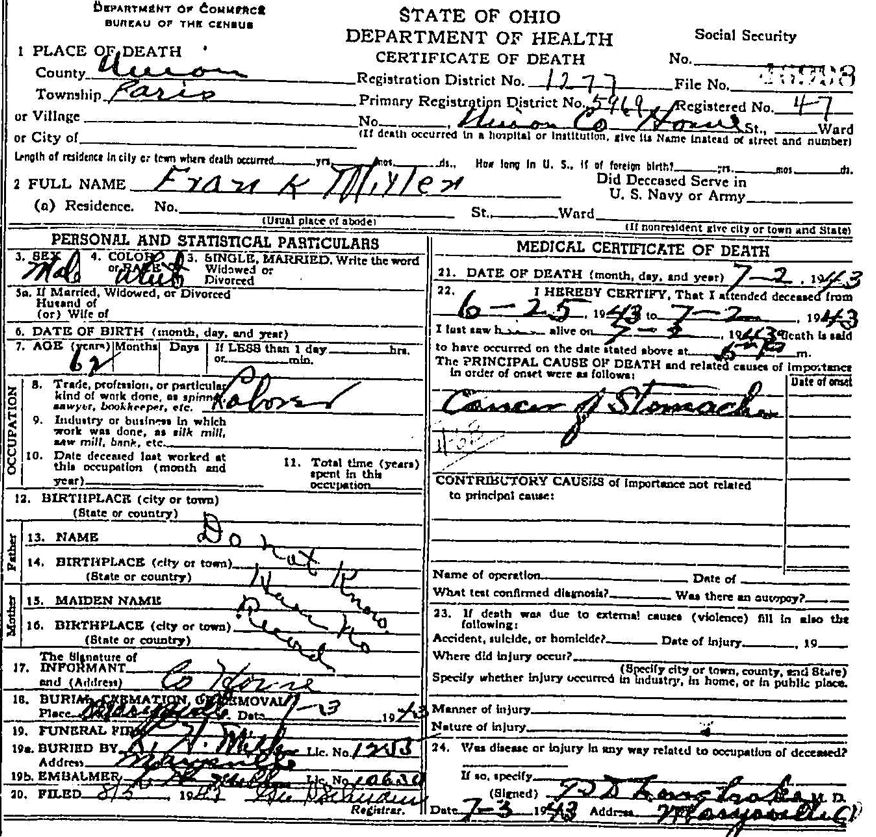 DEPARTMENT OF COMMERCE
BUREAU OF THE CENSUS
STATE OF OHIO
DEPARTMENT OF HEALTH
CERTIFICATE OF DEATH
Social Security
No.
1 PLACE OF DEATH
County Union
Registration District No. 1277 File No.
Township Paris
Primary Registration District No. 5969 Registered No. 47
or Village
No. Union Co Home St., Ward
or City of
(If death occurred in a hospital or institution, give its Name instead of street and number)
Length of residence in city or town where death occurred yrs. mos. ds. How long in U. S., if of foreign birth? yrs. mos. ds.
2 FULL NAME Frank Miller
Did Deceased Serve in
U. S. Navy or Army
(a) Residence. No. St., Ward
(Usual place of abode) (If nonresident give city or town and State)
PERSONAL AND STATISTICAL PARTICULARS
3. SEX 4. COLOR or RACE 5. SINGLE, MARRIED, Write the word
Widowed or
Divorced
Male White
5a. If Married, Widowed, or Divorced
Husand of
(or) Wife of
6. DATE OF BIRTH (month, day, and year)
7. AGE (years) Months Days If LESS than 1 day hrs.
or min.
62
OCCUPATION
8. Trade, profession, or particular
kind of work done, as spinner,
sawyer, bookkeeper, etc. Laborer
9. Industry or business in which
work was done, as silk mill,
saw mill, bank, etc.
10. Date deceased last worked at
this occupation (month and
year)
11. Total time (years)
spent in this
occupation
12. BIRTHPLACE (city or town)
(State or country)
Father
13. NAME Do not Know
14. BIRTHPLACE (city or town)
(State or country)
Have No
Mother
15. MAIDEN NAME
16. BIRTHPLACE (city or town)
(State or country)
Record
17. The Signature of
INFORMANT
and (Address) Co Home
18. BURIAL, CREMATION, OR REMOVAL
Place Marysville Date 7-3 1943
19. FUNERAL FIRM
19a. BURIED BY Lic. No. 1253
Address Marysville
19b. EMBALMER Lic. No. 1063
20. FILED 8/5 1943
Registrar.
MEDICAL CERTIFICATE OF DEATH
21. DATE OF DEATH (month, day, and year) 7-2, 1943
22. I HEREBY CERTIFY, That I attended deceased from
6-25, 1943 to 7-2, 1943
I last saw h alive on 7-2, 1943, death is said
to have occurred on the date stated above at m.
The PRINCIPAL CAUSE OF DEATH and related causes of importance
in order of onset were as follows:
Date of onset
Cancer of Stomach
CONTRIBUTORY CAUSES of importance not related
to principal cause:
Name of operation Date of
What test confirmed diagnosis? Was there an autopsy?
23. If death was due to external causes (violence) fill in also the
following:
Accident, suicide, or homicide? Date of injury, 19
Where did injury occur?
(Specify city or town, county, and State)
Specify whether injury occurred in industry, in home, or in public place.
Manner of injury
Nature of injury
24. Was disease or injury in any way related to occupation of deceased?
If so, specify
(Signed) M. D.
Date 7-3 1943 Address Marysville O